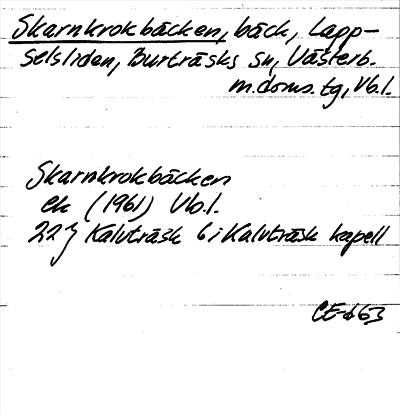 Skarnkrokbäcken, bäck, Lapp-
selsliden, Burträsks sn, Västerb.
m. doms. tg, Vb. l.
Skarnkrokbäcken
ek (1961) Vb. l.
22 J Kalvträsk 6 i Kalvträsk kapell